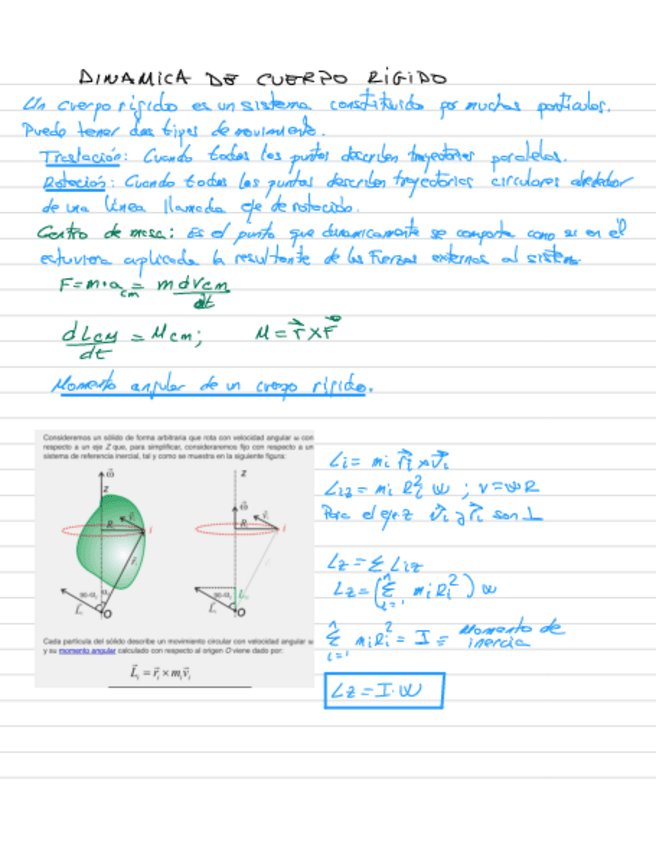 DINAMICA DE CUERPO RIGIDO
Un cuerpo rigido es un sistema constituido por muchas particulas.
Puede tener dos tipos de movimiento.
Traslación: Cuando todos los puntos describen trayectorias paralelas.
Rotación: Cuando todos los puntos describen trayectorias circulares alrededor
de una linea llamada eje de rotación.
Centro de masa: Es el punto que dinamicamente se comporta como si en él
estuviera aplicada la resultante de las Fuerzas externas al sistema
F = m·a_cm = m dVcm/dt
dLcm/dt = Mcm; M = r⃗ x F⃗
Momento angular de un cuerpo rígido.
Consideremos un sólido de forma arbitraria que rota con velocidad angular ω con
respecto a un eje Z que, para simplificar, consideraremos fijo con respecto a un
sistema de referencia inercial, tal y como se muestra en la siguiente figura:
ω⃗
z
R_i
v⃗_i
i
r⃗_i
90-α_i
α_i
L⃗_i
O
z
ω⃗
R_i
v⃗_i
i
90-α_i
L⃗_i
O
Cada partícula del sólido describe un movimiento circular con velocidad angular ω
y su momento angular calculado con respecto al origen O viene dado por:
L⃗_i = r⃗_i × m_i v⃗_i
Li = mi r⃗i x v⃗i
Liz = mi Ri² ω ; v = ωR
Para el eje z v⃗i y r⃗i son ⊥
Lz = Σ Liz
Lz = (Σ_{i=1}^{n} mi Ri²) ω
Σ_{i=1}^{n} mi Ri² = I = Momento de
inercia
Lz = I·ω